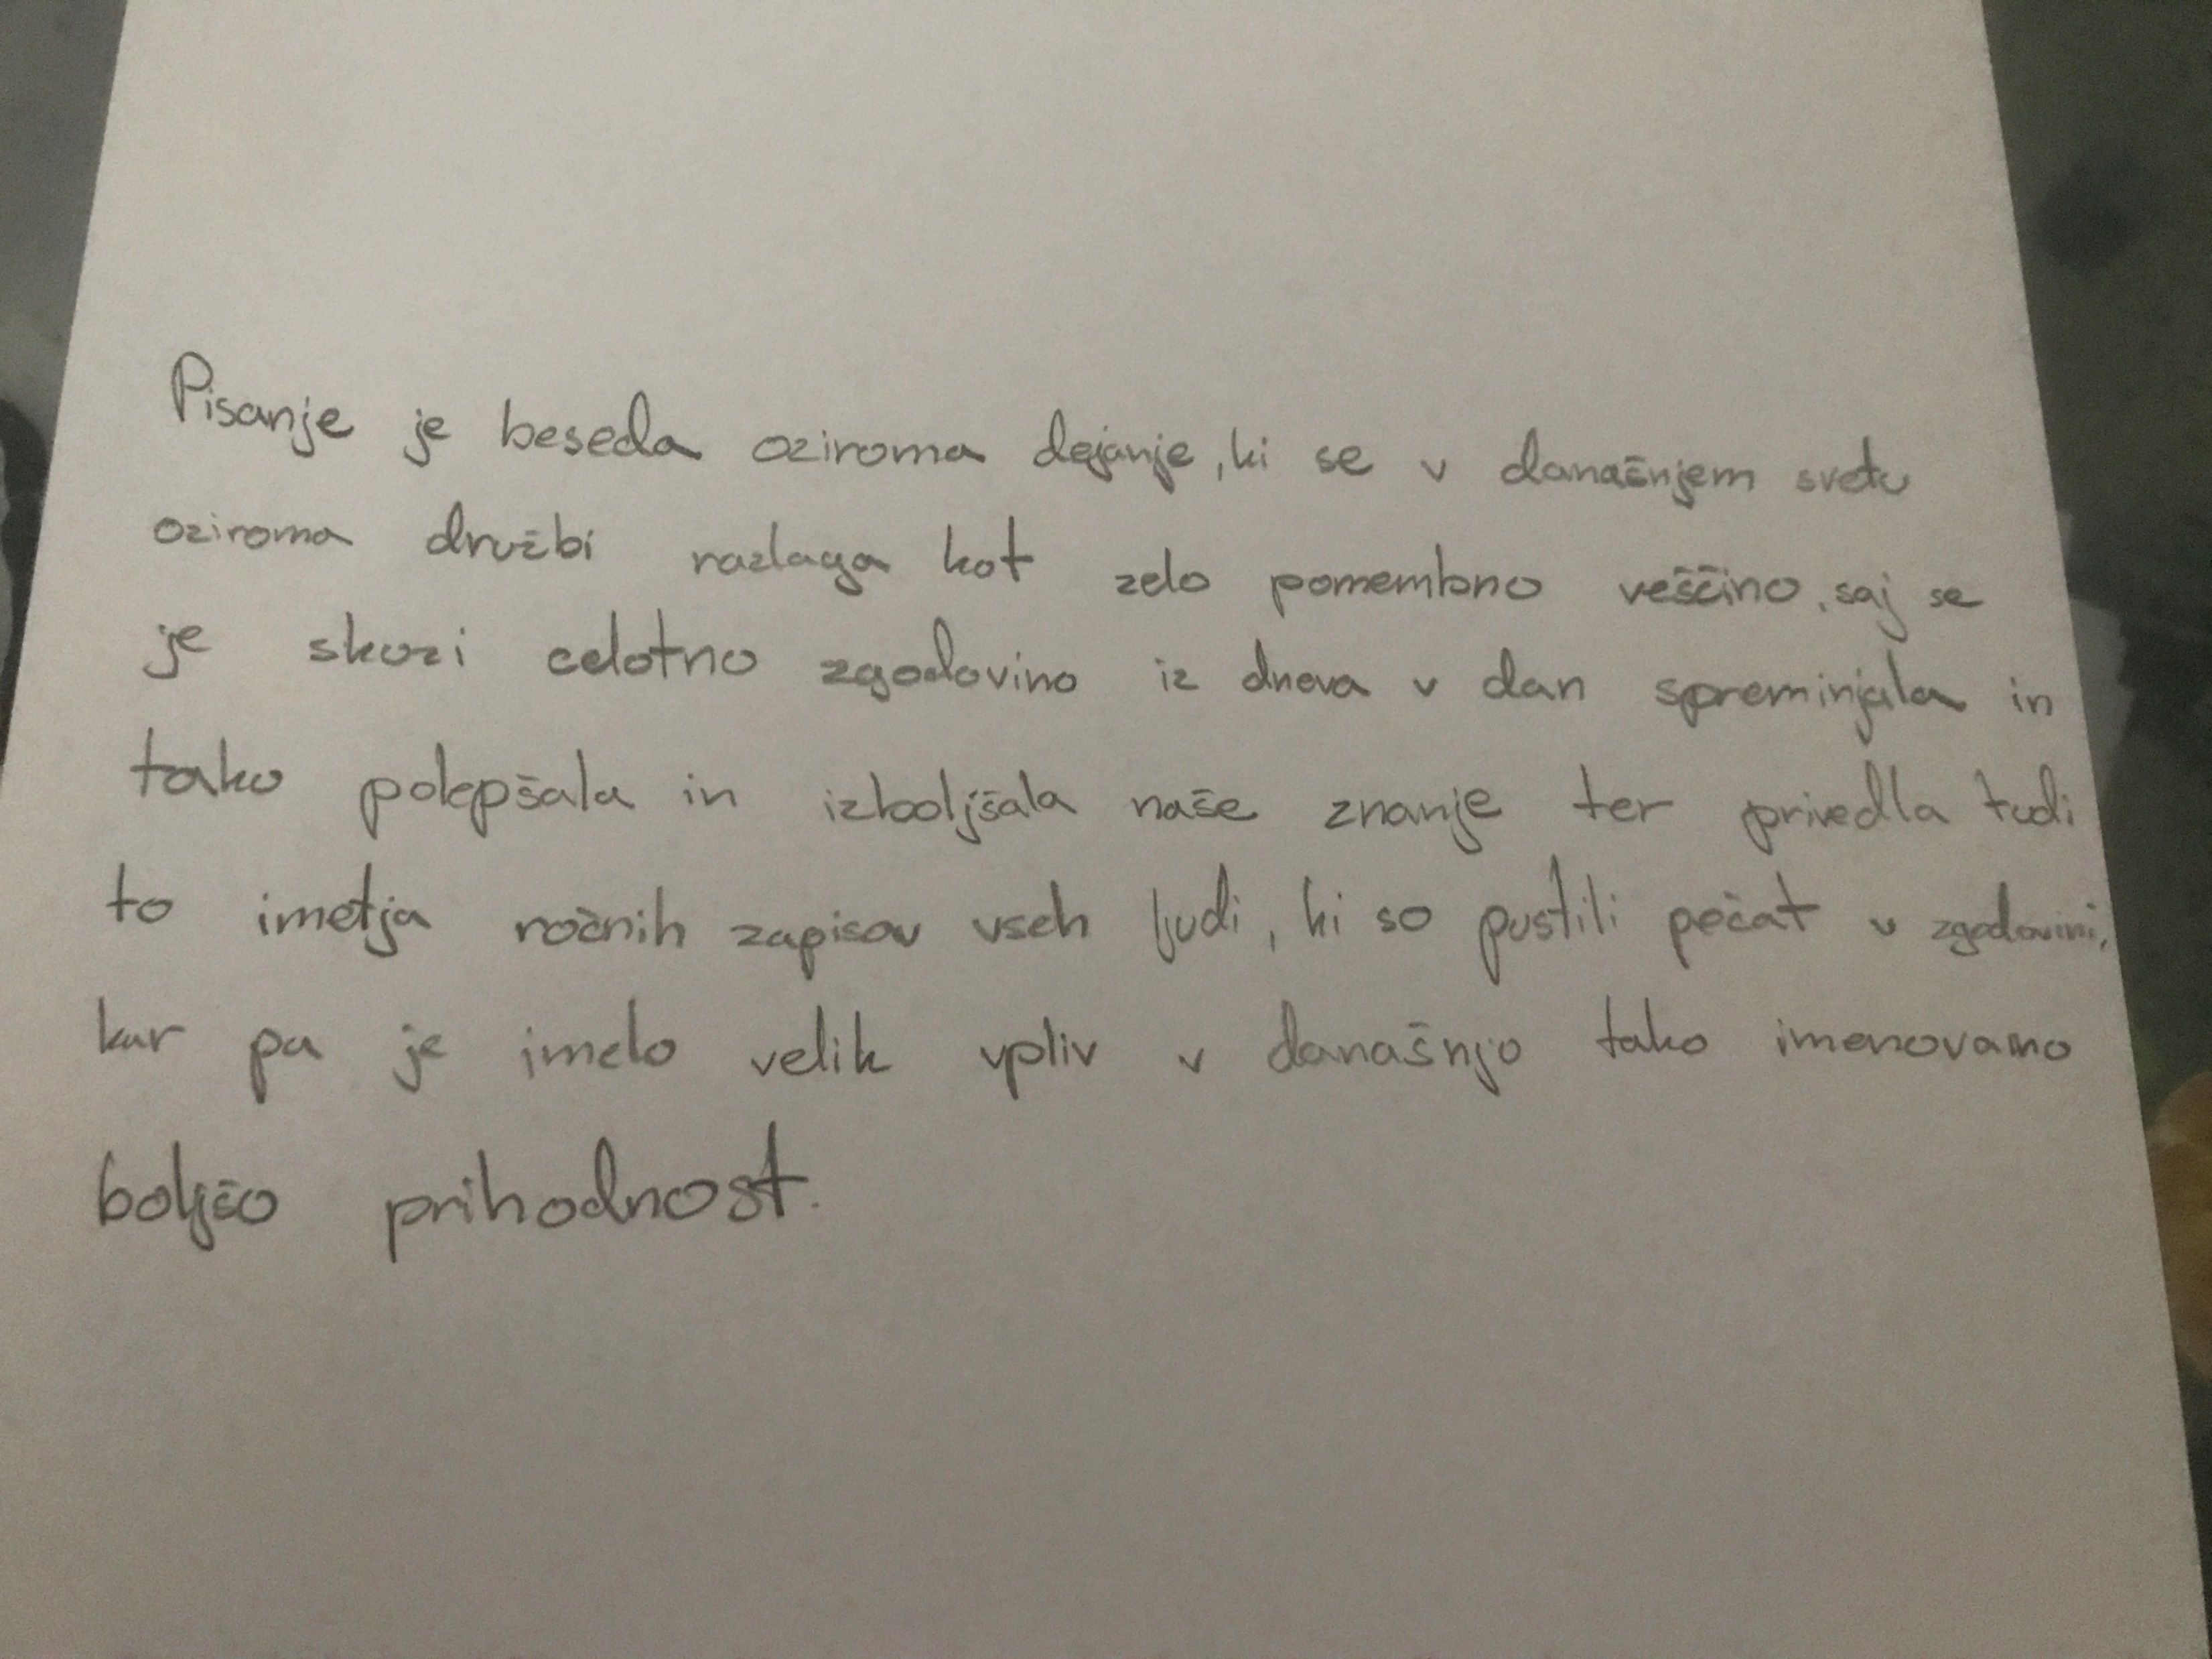 Pisanje je beseda oziroma dejanje, ki se v današnjem svetu
oziroma družbi razlaga kot zelo pomembno veščino, saj se
je skozi celotno zgodovino iz dneva v dan spreminjala in
tako polepšala in izboljšala naše znanje ter privedla tudi
to imetja ročnih zapisov vseh ljudi, ki so pustili pečat v zgodovini,
kar pa je imelo velik vpliv v današnjo tako imenovano
boljšo prihodnost.